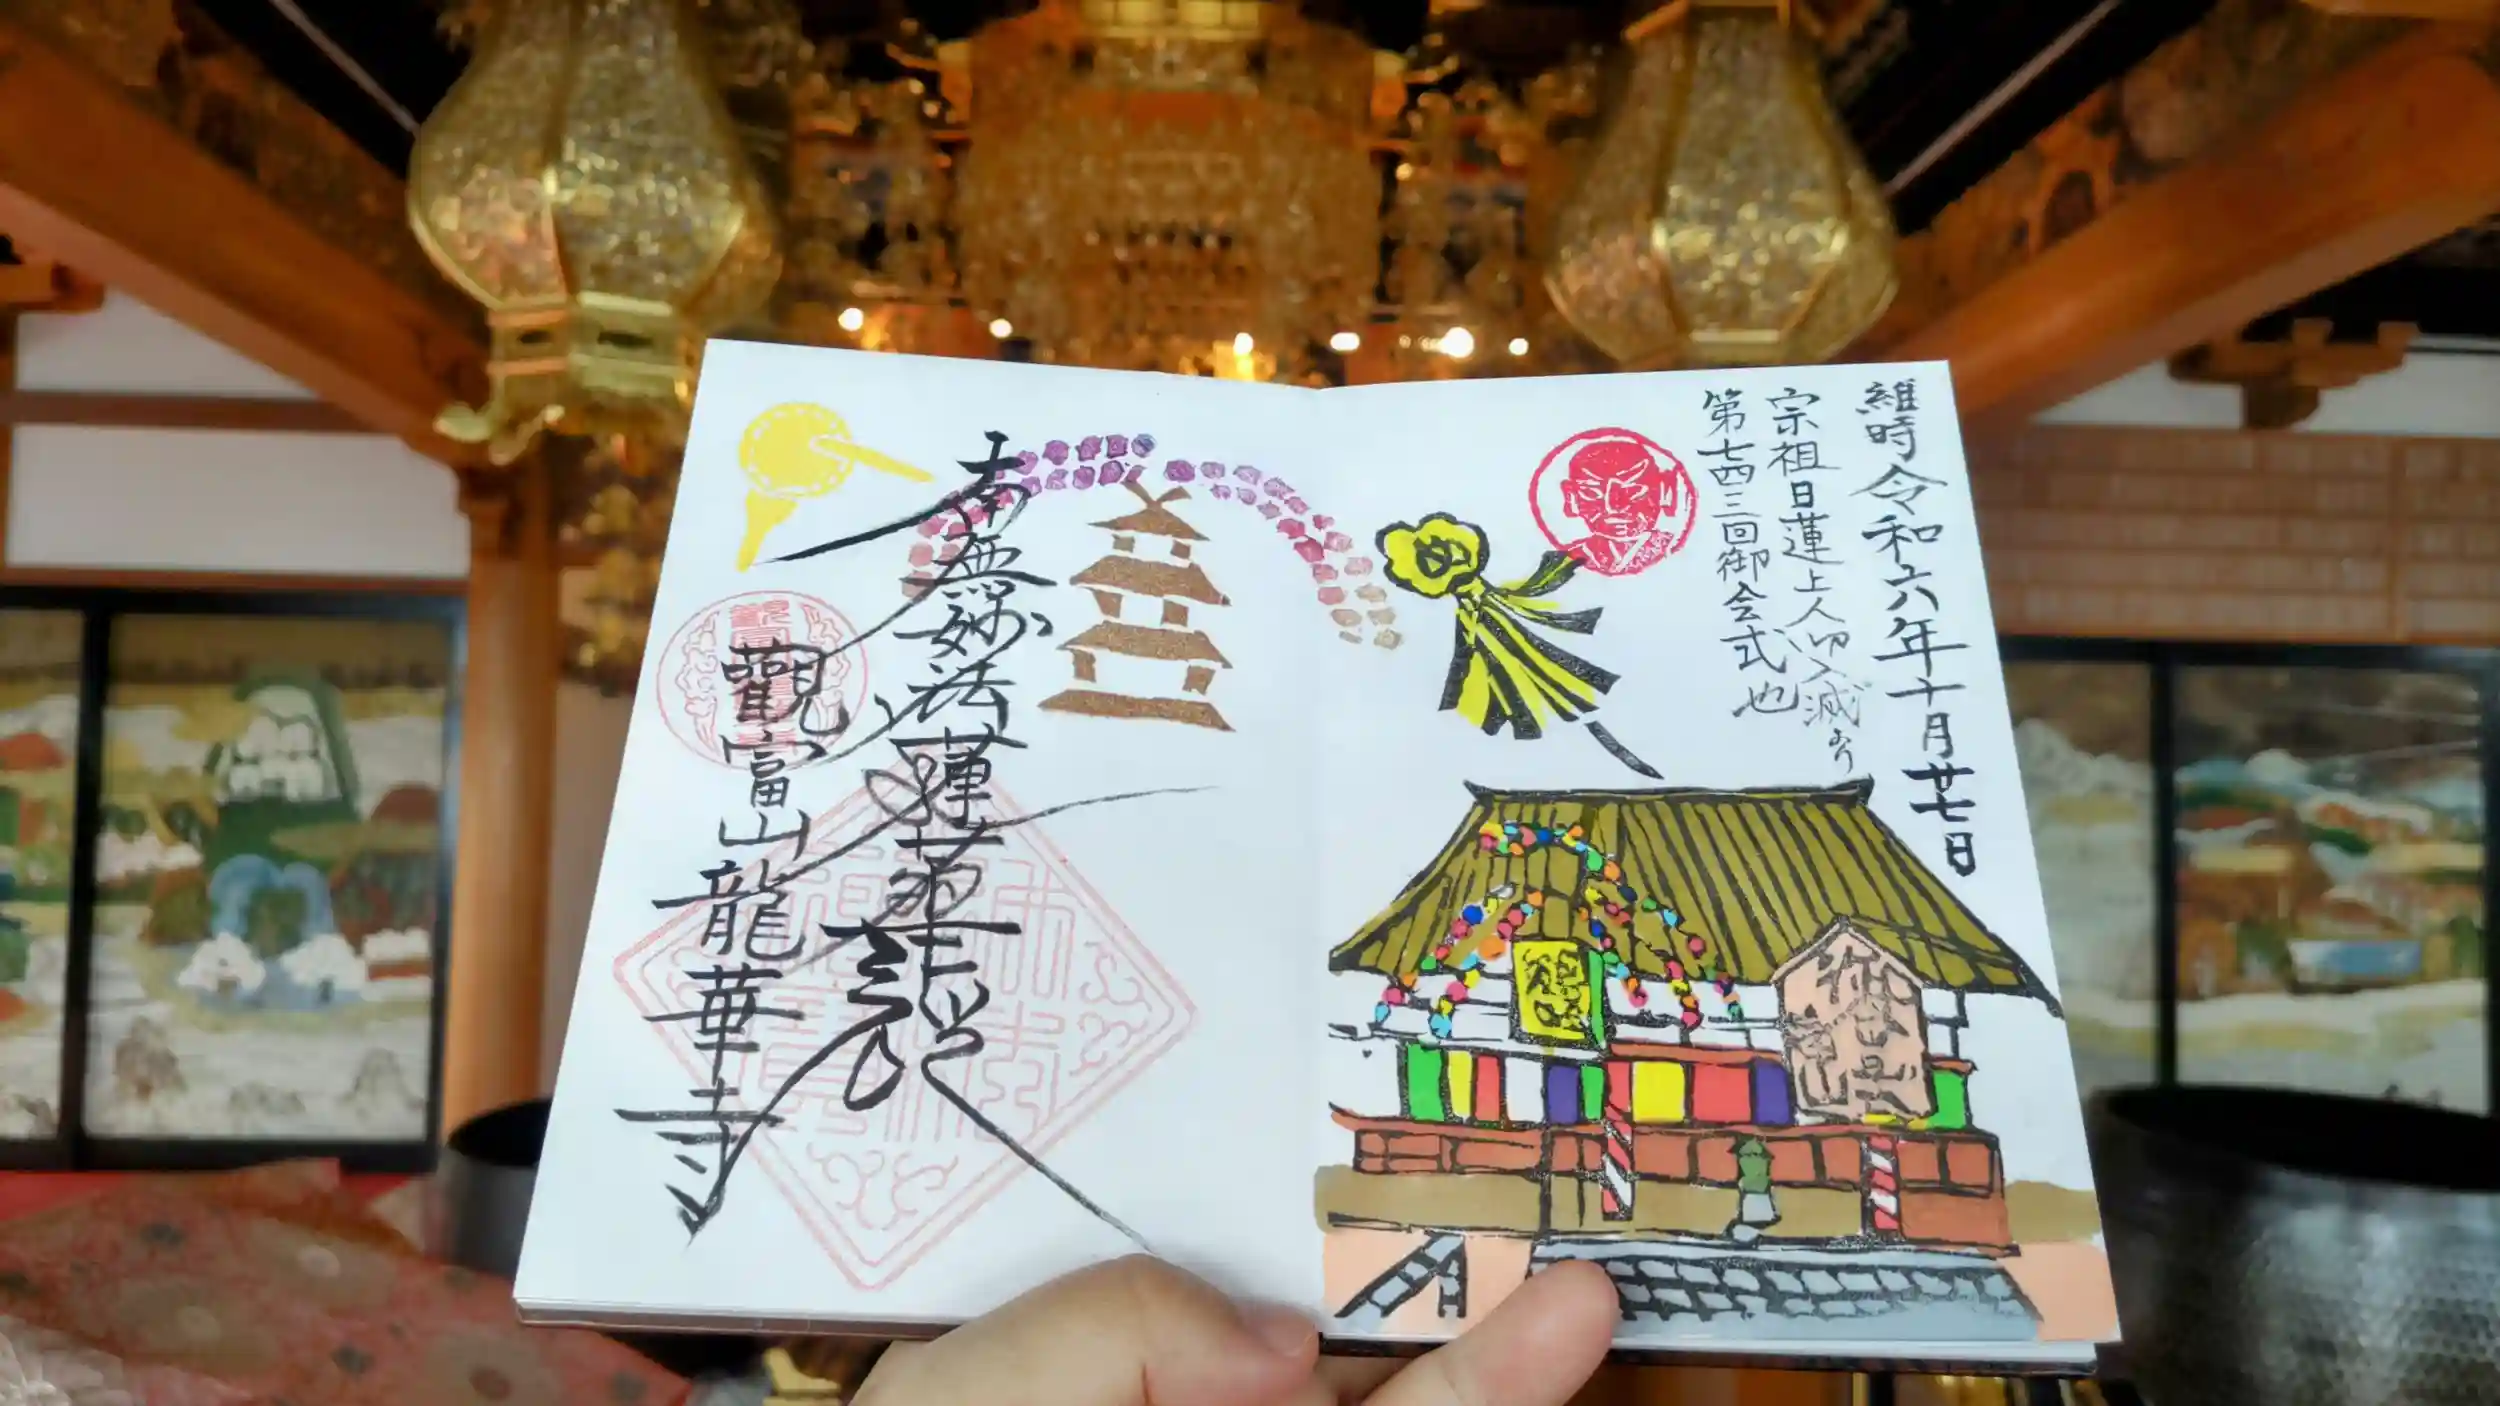 維時令和六年十月廿七日
宗祖日蓮上人御入滅より
第七四三回御会式也
南無妙法蓮華経
觀富山龍華寺